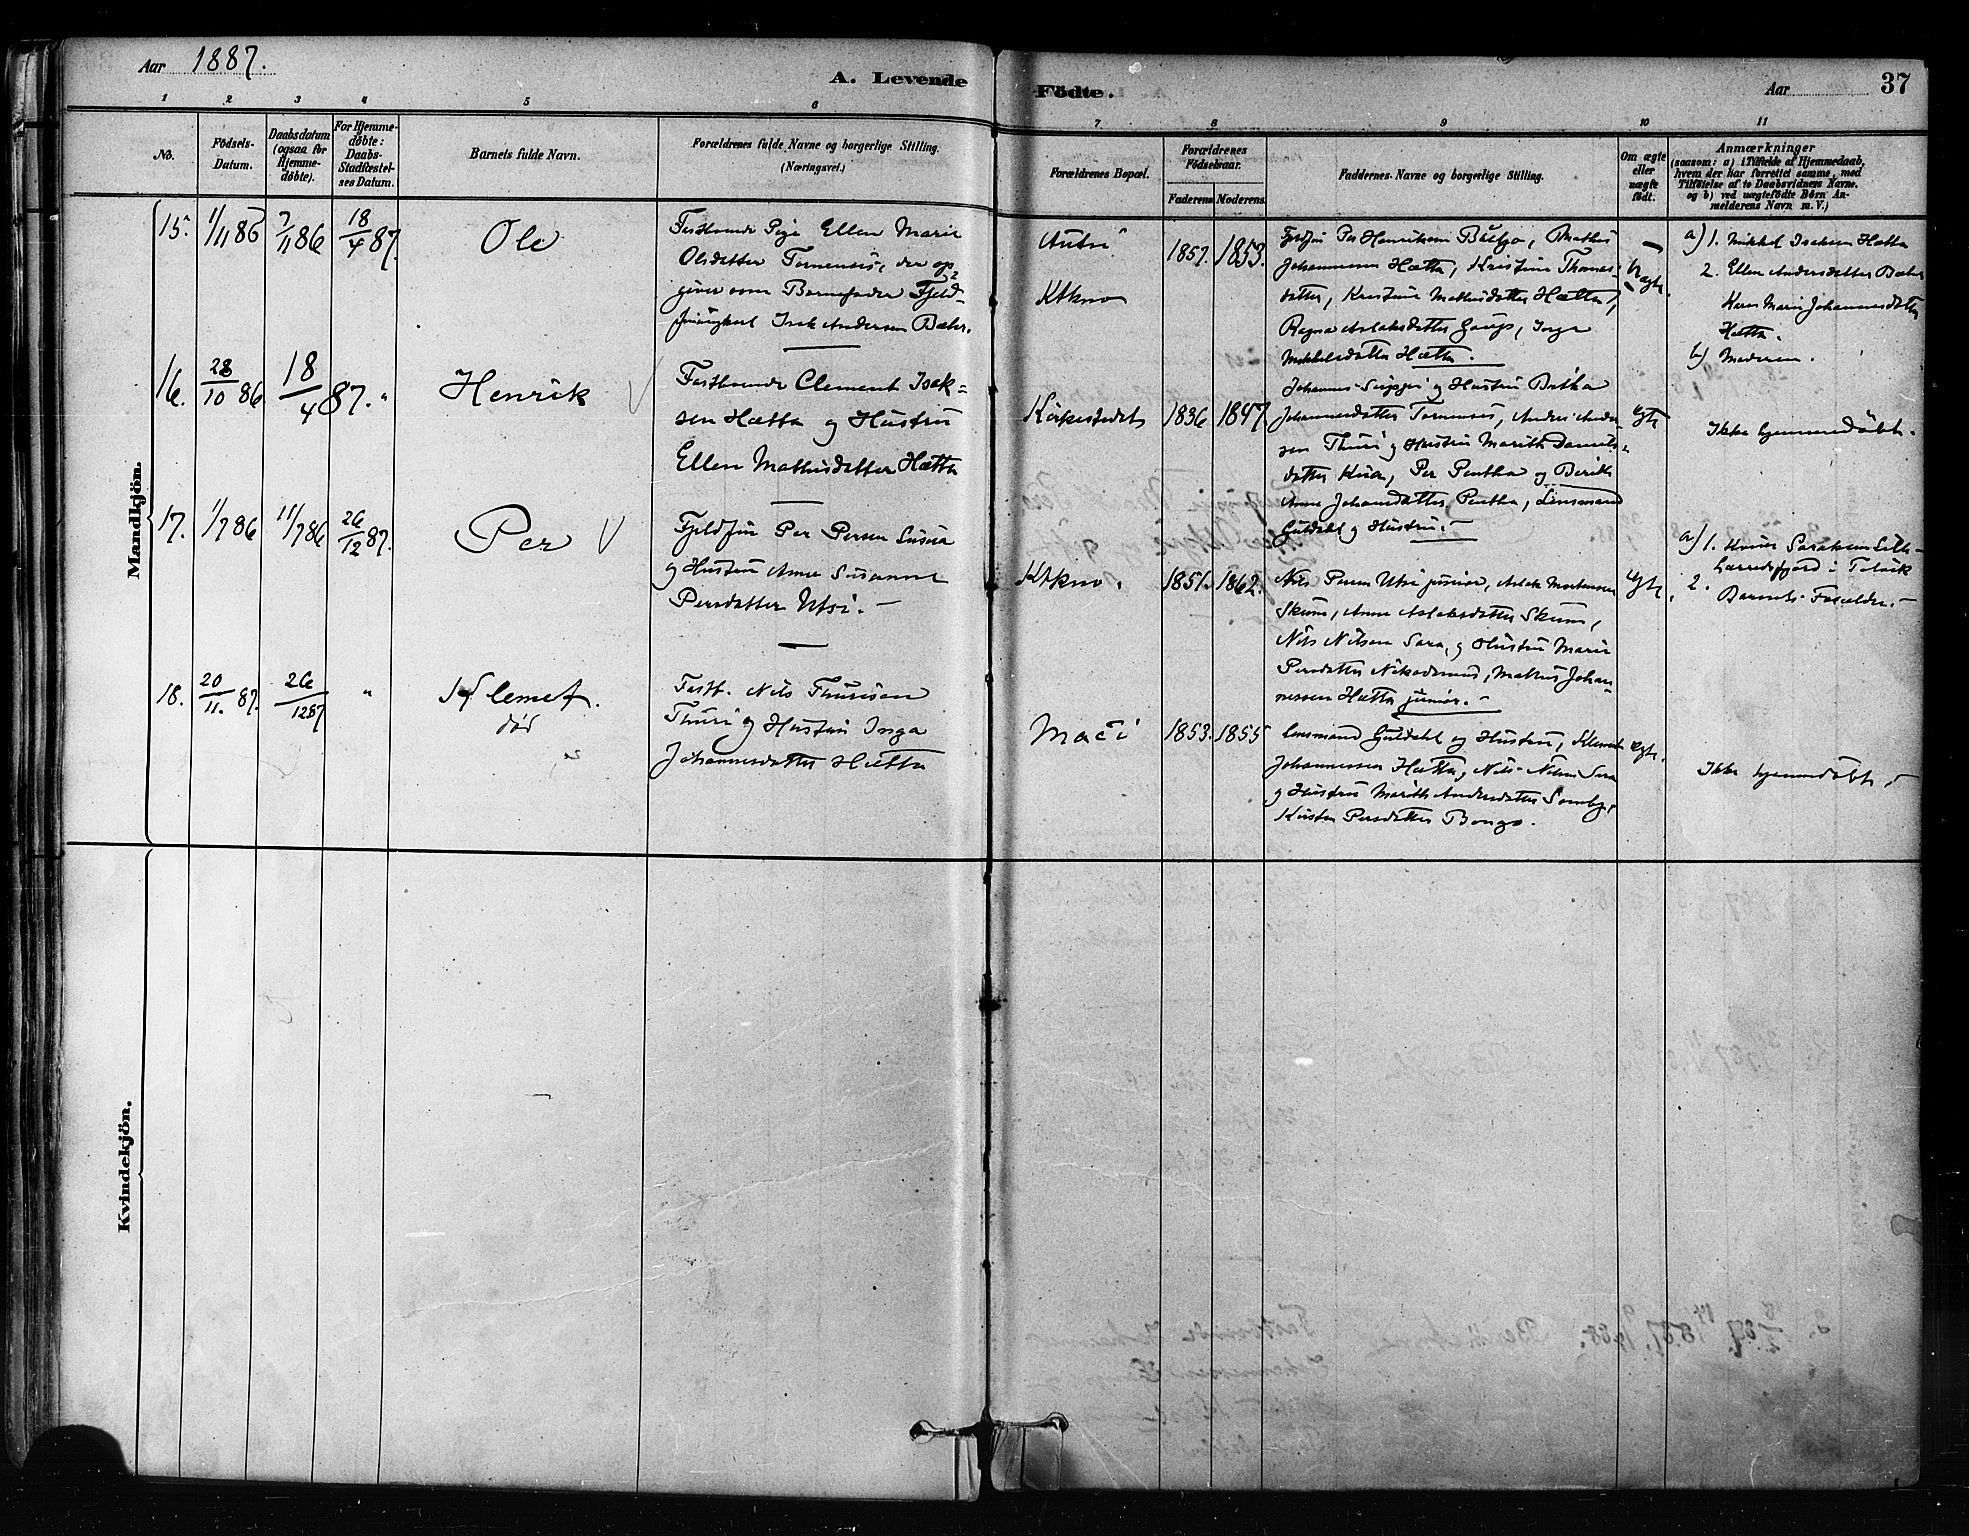 Aar 1887.
A. Levende
Födte.
Aar
37
1
2
3
4
5
6
7
8
9
10
11
No.
Fødsels-
Datum.
Daabsdatum
(ogsaa for
Hjemme-
døbte).
For Hjemme-
døbte:
Daabs-
Stadfæstel-
ses Datum.
Barnets fulde Navn.
Forældrenes fulde Navne og borgerlige Stilling.
(Næringsvei.)
Forældrenes Bopæl.
Forældrenes
Fødselsaar.
Faderens.
Moderens.
Faddernes Navne og borgerlige Stilling.
Om ægte
eller
uægte
født.
Anmærkninger
(saasom: a) i Tilfælde af Hjemmedaab,
hvem der har forrettet samme, med
Tilføielse af to Daabsvidners Navne.
og b) ved uægtefødte Børn An-
melderens Navn m. V.)
Mandkjön.
15.
1/11 86
7/11 86
18/4 87.
Ole
Fastboende Pige Ellen Marie
Olsdatter Tornensis, der op-
giver som Barnefader Fjeld-
Isak Andersen Bæhr.
KtKno
1857.
1853.
Per Henriksen Mathis
Johannessen Hætta, Kristine Thomas-
datter, Kristine Mathisdatter Hætta,
Ragna Aslaksdatter Gaup, Inga
Mikkelsdatter Hætta.
Uægte.
a) 1. Mikkel Isaksen Hætta
2. Ellen Andersdatter Bæhr
Karen Marie Johannesdatter
Hætta.
b) Moderen.
16.
28/10 86
18/4 87.
"
Henrik
Fastboende Clement Isak-
sen Hætta og Hustru
Ellen Mathisdatter Hætta
Kirkestedet
1836
1847.
Johannes og Hustru Britha
Johannesdatter Tornensis, Anders Ander-
sen Thuri og Hustru Marith Daniels-
datter Per Pentha og Berith
Anne Johansdatter Pentha, Lensmand
Guldahl og Hustru.
Ægte
Ikke hjemmedøbt.
17.
1/7 86
11/7 86
26/12 87.
Per
Fjeldfin Per Persen
og Hustru Anne Susanne
Persdatter Utsi.
KtKno.
1851.
1862.
Nils Persen Utsi junior, Aslak Mortensen
Skum, Anne Aslaksdatter Skum,
Nils Nilsen Sara, og Hustru Marie
Persdatter Mathis Johan-
nessen Hætta junior.
Ægte.
a) 1.
i Talvik
2. Barnets Forældre.
18.
20/11. 87.
26/12 87
"
Klemet.
død
Fastb. Nils Thurisen
Thuri og Hustru Inga
Johannesdatter Hætta
Maci
1853.
1855
Lensmand Guldahl og Hustru, Klemet
Johannessen Hætta, Nils Nilsen Sara
og Hustru Marith Andersdatter Somby,
Kirsten Persdatter Bongo.
Ægte.
Ikke hjemmedøbt
Kvindekjön.